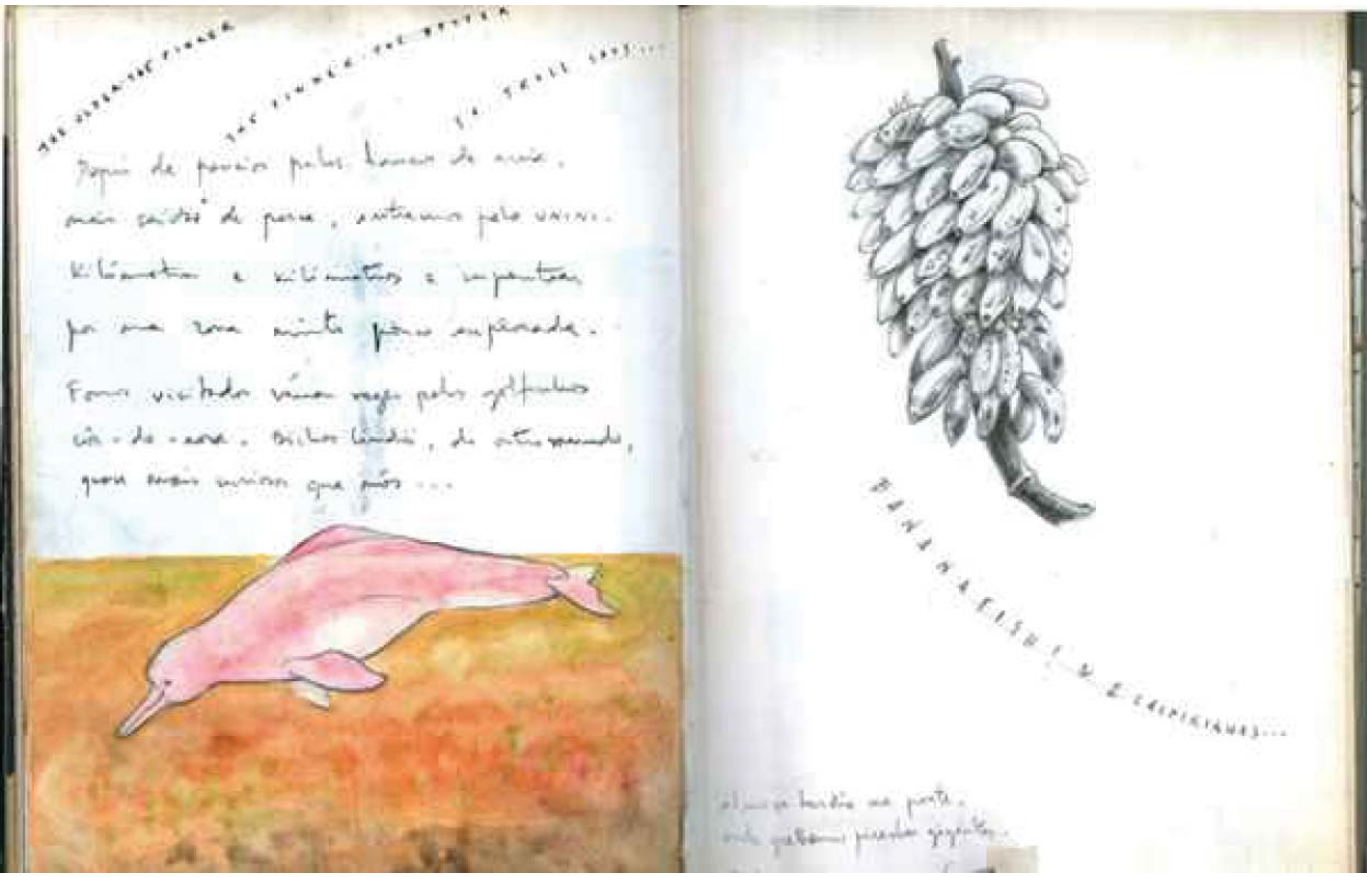 THE OLDER THE PINKER
THE PINKER THE BETTER
SKULL SAYS...
Depois de passeios pelos bancos de areia,
mais saídas de pesca, entramos pelo UNINI.
Kilómetros e kilómetros a serpentear
por uma zona muito pouco explorada.
Fomos visitados várias vezes pelos golfinhos
côr-de-rosa. Bichos lindos, de outro mundo,
quase mais curiosos que nós...
BANANAFISHIN & CAIPIRINHAS...
Almoço tardio na
piranhas gigantes.